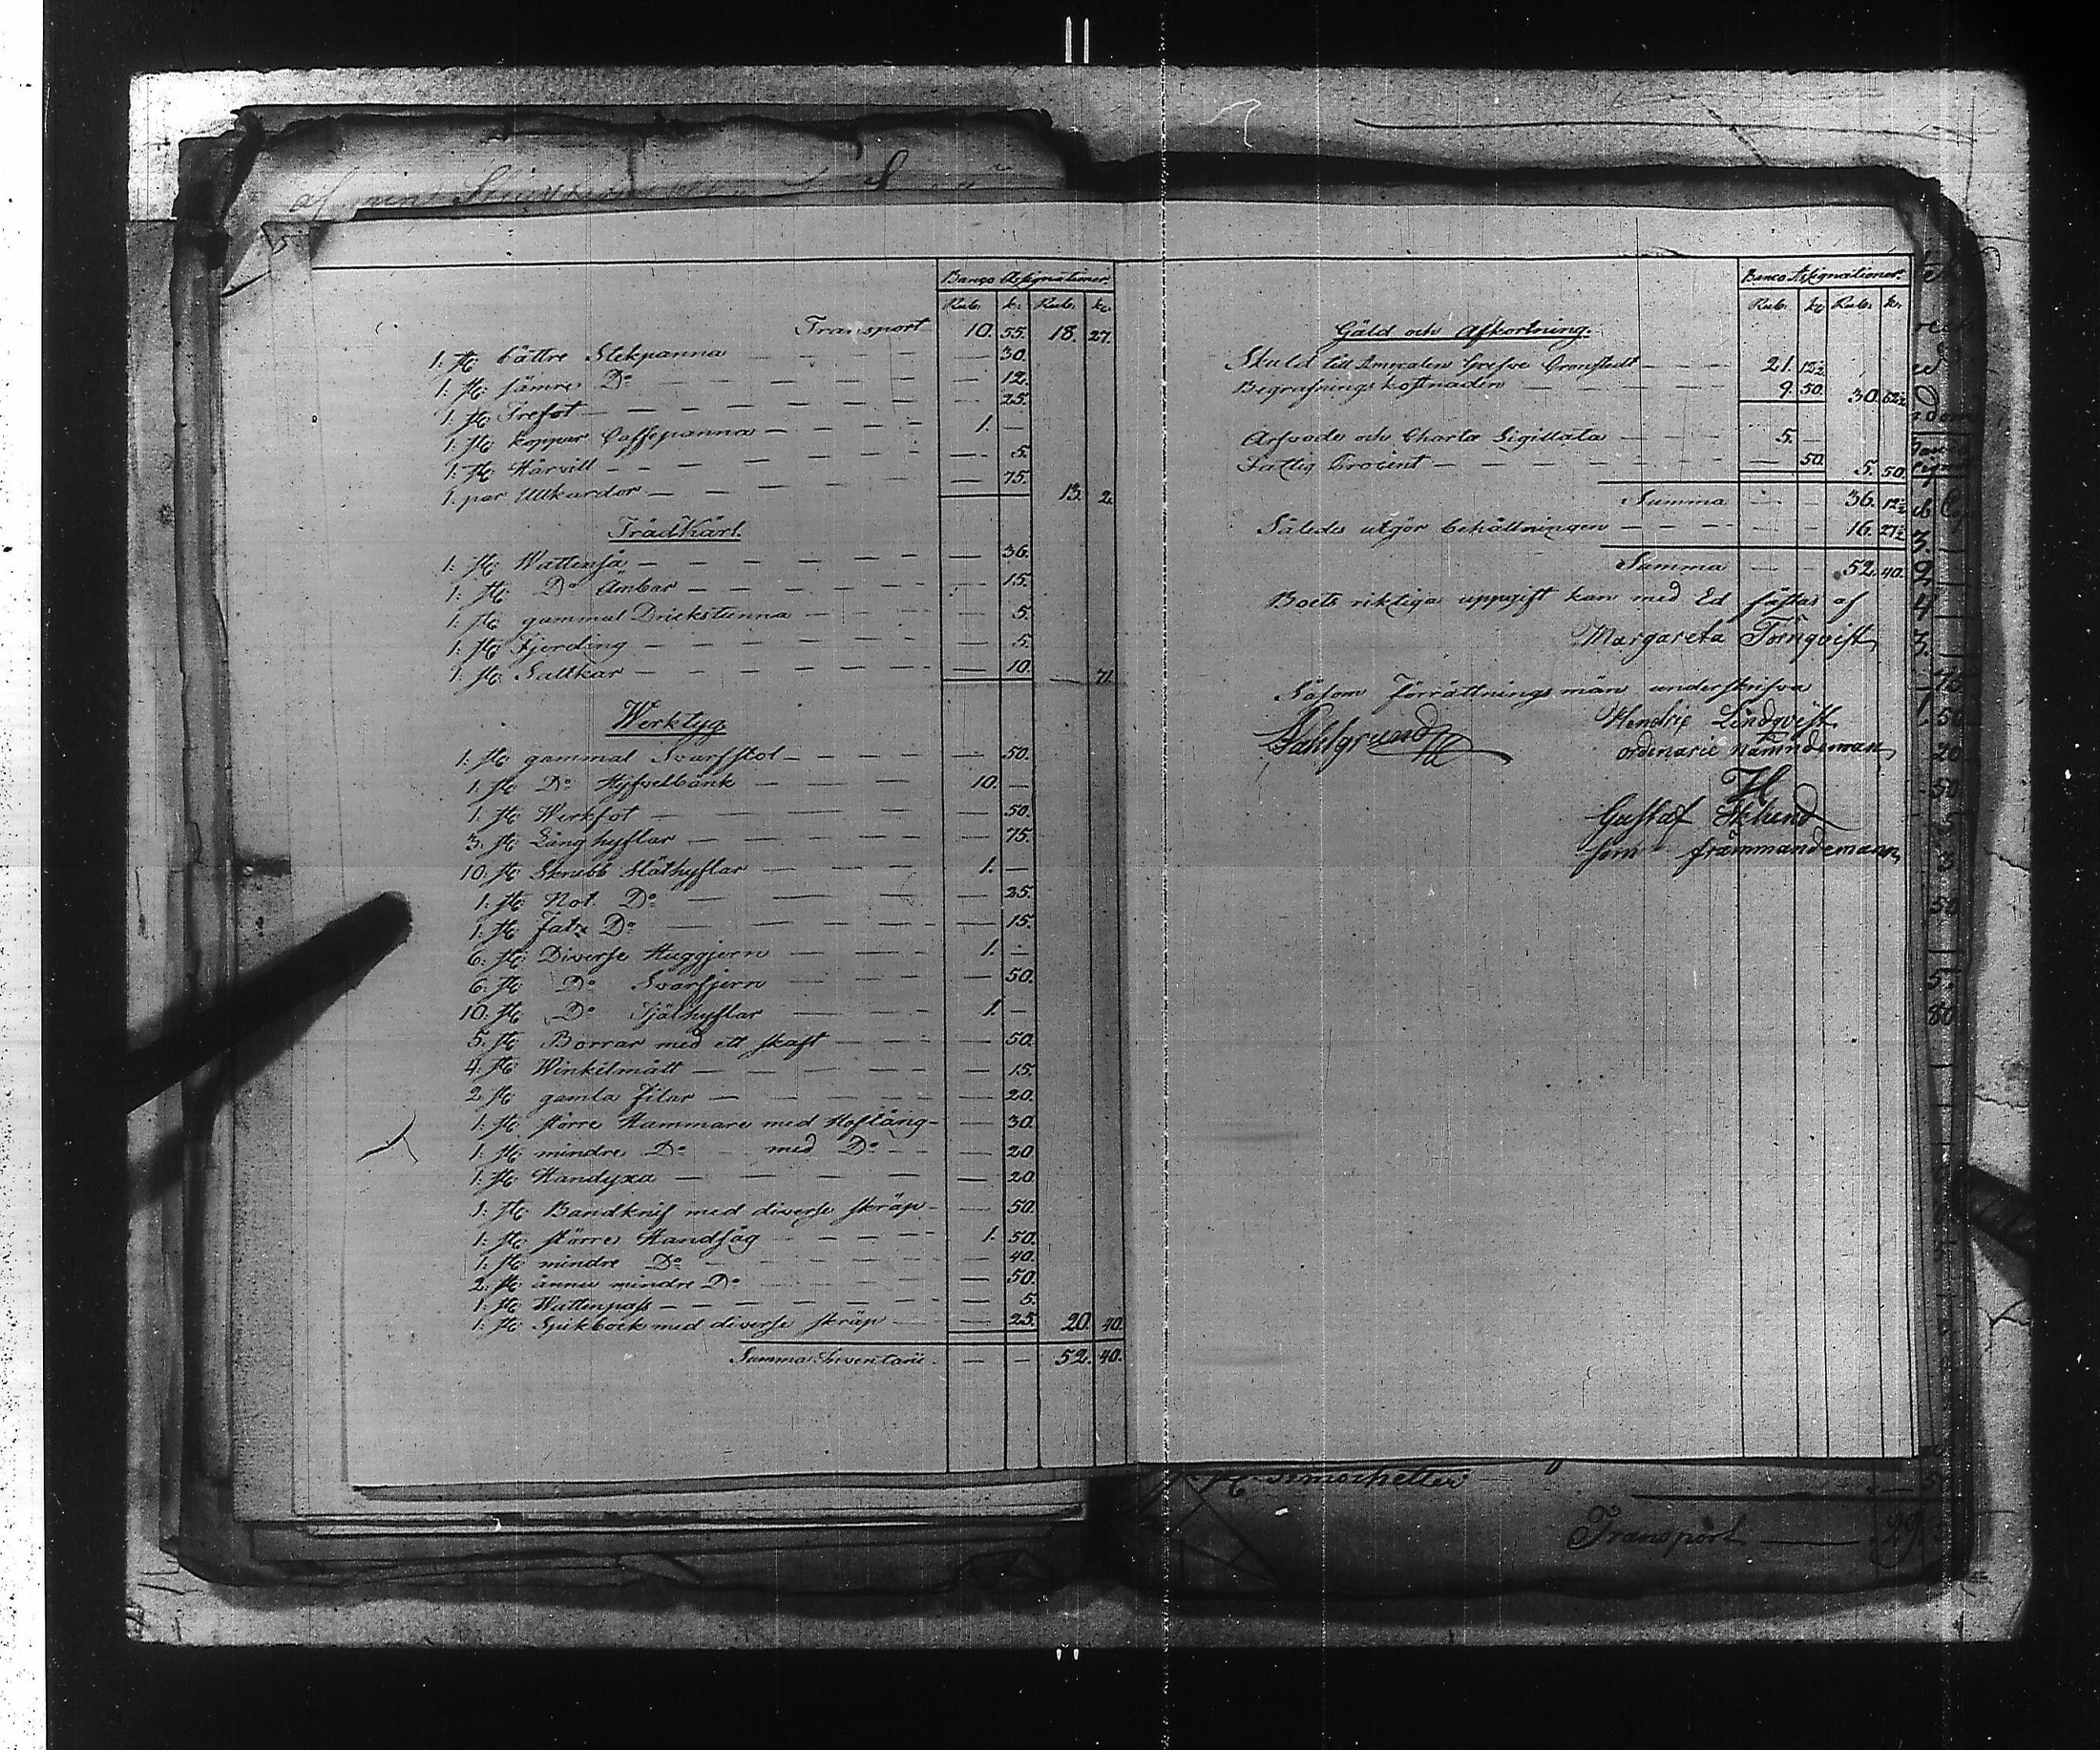 Banco Assignationer.
Rub. k. Rub. k.
Transport 10. 55. 18. 27.
1: st. bättre Stekpanna — 30.
1: st. sämre Do — 12.
1: st. Trefot — 25.
1: st. koppar Caffepanna 1. —
1: st. Härvill — 5.
1. par Ullkardor — 75. 13. 2.
TrädKärl.
1: st. Wattenså — 36.
1: st. Do Ämbar — 15.
1: st. gammal Dricks tunna — 5.
1: st. Fjerding — 5.
1: st. Saltkar — 10. — 71.
Werktyg.
1: st. gammal Svarfstol — 50.
1. st. Do Hyfvelbänk 10. —
1. st. Werkfot — 50.
3. st. Långhyflar — 75.
10. st. Skrubb Släthyflar 1. —
1: st. Not Do — 25.
1: st. Do — 15.
6: st. Diverse Huggjern 1. —
6: st. Do Svarfjern — 50.
10: st. Do Kjälhyflar 1. —
5. st. Borrar med ett skaft — 50.
4. st. Winkelmått — 15.
2 st. gamla filar — 20.
1: st. större Hammare med Hoftång — 30.
1: st. mindre Do med Do — 20
1: st. Handyxa — 20.
1: st. Bandknif med diverse skräp — 50.
1: st. större Handsåg 1. 50.
1: st. mindre Do — 40.
2: st. ännu mindre Do — 50.
1: st. Wattenpass — 5.
1: st. Spikbock med diverse skräp — 25. 20. 40.
Summa Inventarii — — 52. 40.
Banco Assignationer.
Rub. k. Rub. k.
Gäld och Afkortning.
Skuld till Grefve Cronstedt 21. 12½
Begrafnings kostnaden 9. 50. 30. 62½
Arfvode och Charta Sigillata 5. —
Fattig Procent — 50. 5. 50.
Summa — — 36. 12½
Således utgör behållningen — — 16. 27½
Summa — — 52. 40.
Boets riktiga uppgift kan med Ed fästas af
Margareta Törnqvist
Såsom Förrättnings män underskrifva
Dahlgrund Hendric Lindqvist
ordinarie nämndeman
H
Gustaf Eklund
som främmandemann
Transport — 29.